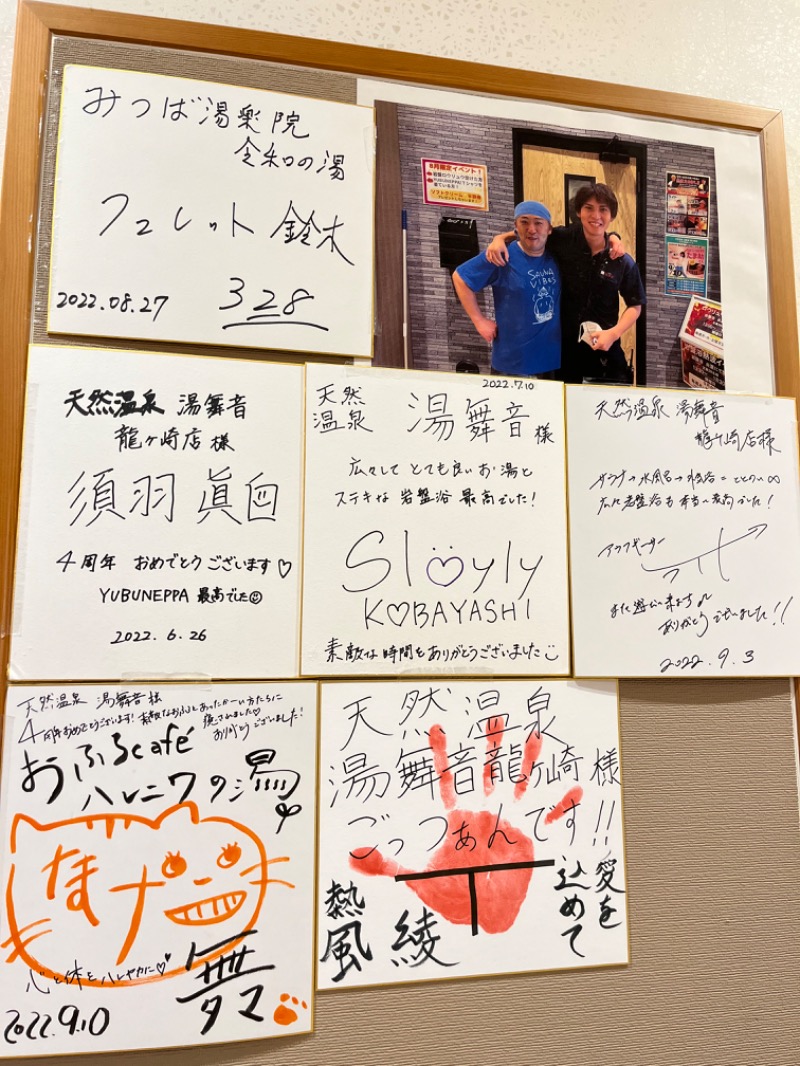 みつば湯楽院
令和の湯
フェレット 鈴木
2022.08.27
328
8月限定イベント!
SAUNA
VIBES
天然温泉 湯舞音
龍ヶ崎店 様
須羽 眞
4周年 おめでとうございます♡
YUBUNEPPA 最高でした☺
2022.6.26
2022.7.10
天然
温泉 湯舞音 様
広々して とても良いお湯と
ステキな 岩盤浴 最高でした!
Slowly
K♡BAYASHI
素敵な時間をありがとうございました
天然温泉 湯舞音
龍ヶ崎店様
サウナ→水風呂→
広い岩盤浴も 本当に最高でした!
アウフギーサー
また遊びに来ます♪
ありがとうございました!!
2022.9.3
天然温泉 湯舞音 様
4周年おめでとうございます! 素敵なお風呂とあったかーい方たちに
癒されました♡
ありがとうございました!
おふろcafé
ハレニワの湯
なまナ
心と体をハレやかに♡
舞
2022.9.10
天然温泉
湯舞音龍ヶ崎 様
ごっつぁんです!!
愛を
込めて
熱風
綾